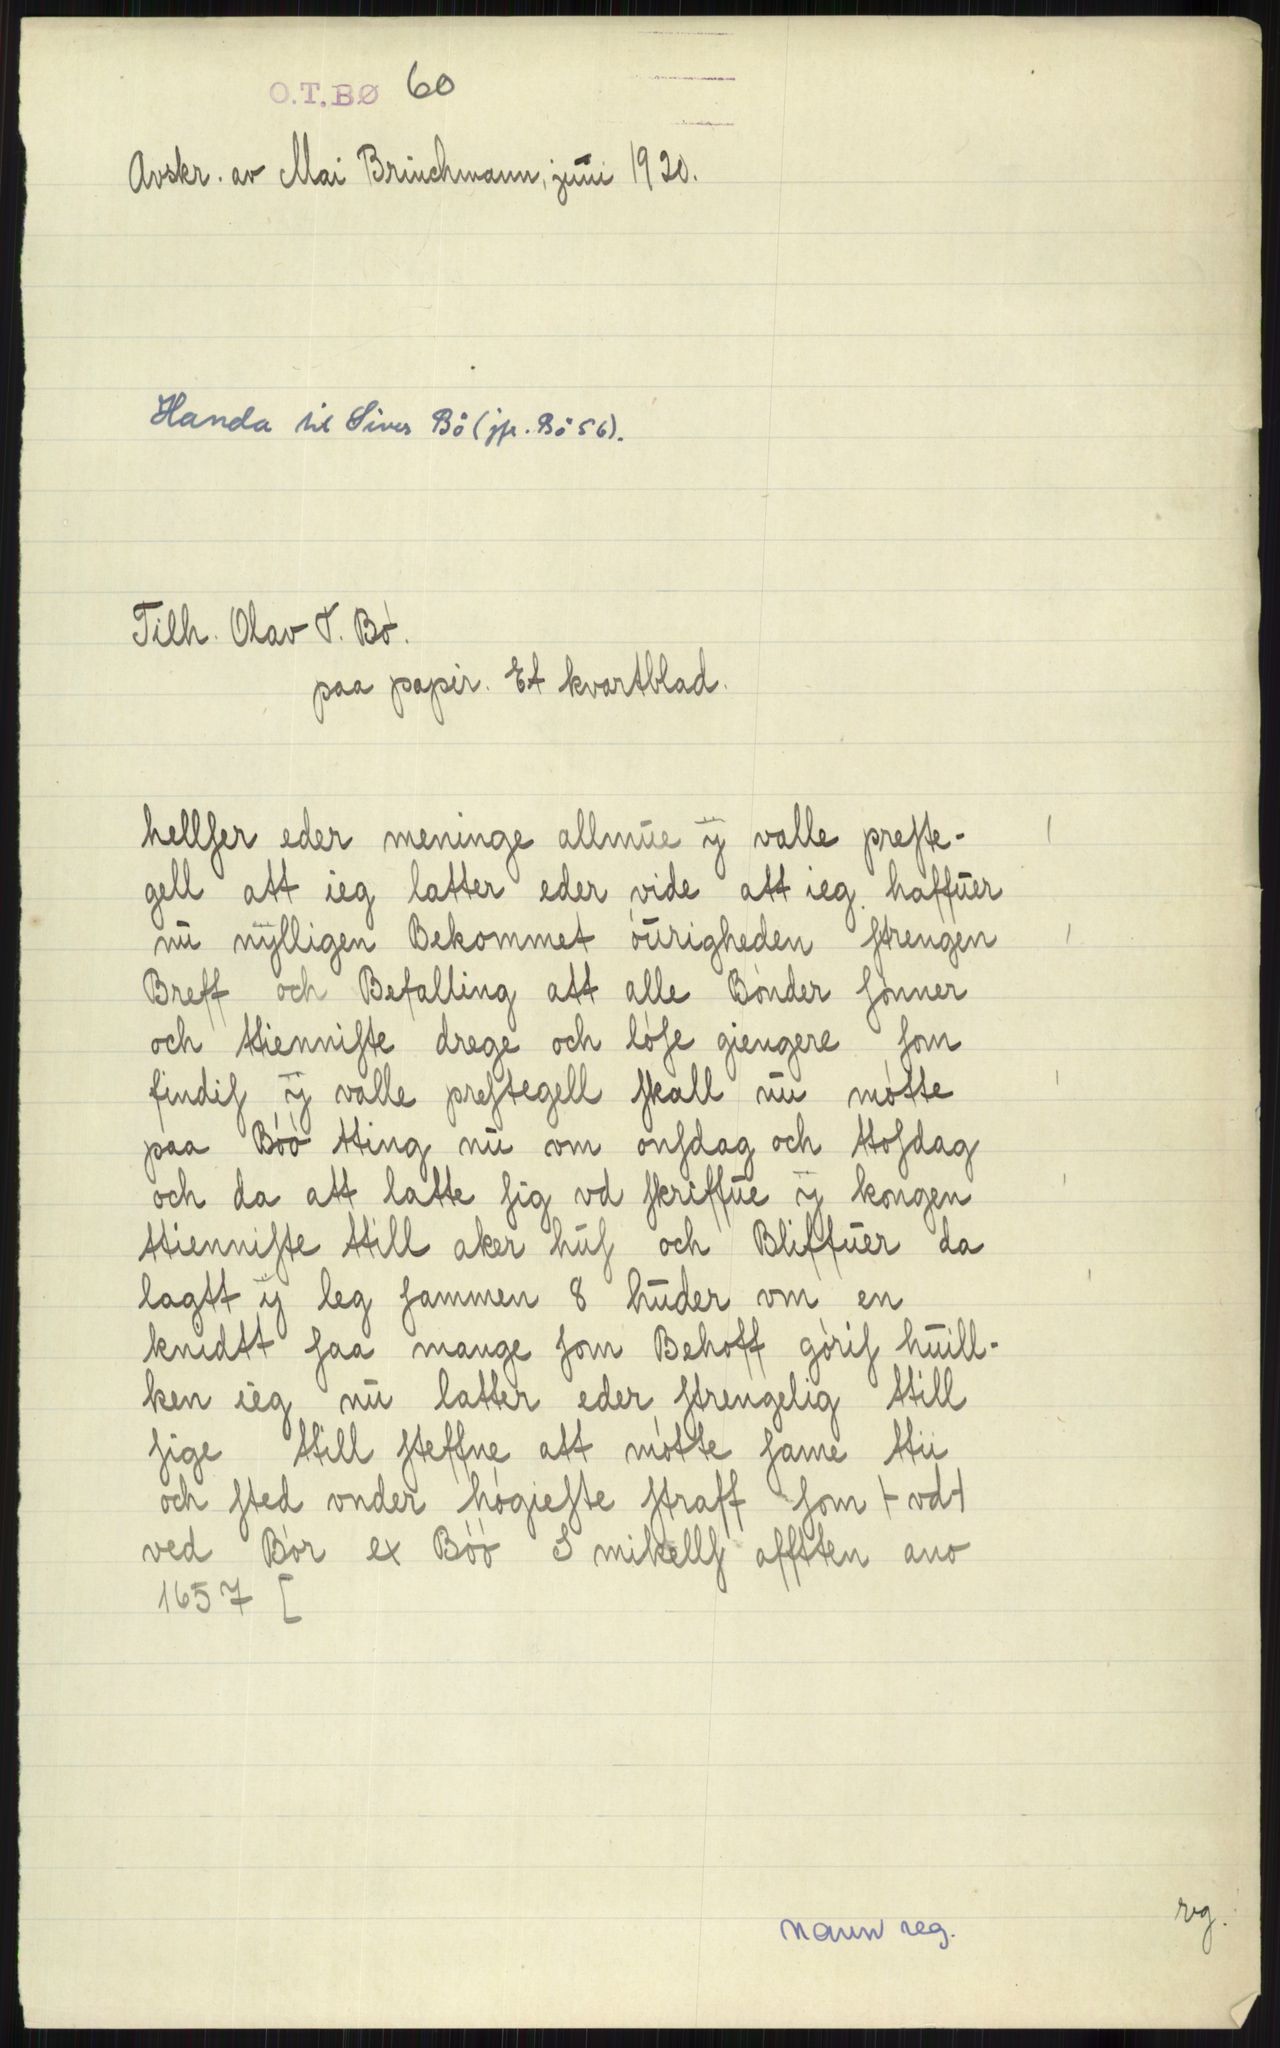 O.T.BØ 60
Avskr. av Mai Brinchmann, juni 1920.
Handa til Sives Bö (jfr. Bö 56).
Tilh. Olav T. Bø.
paa papir. Et kvartblad.
hellſer eder meninge allmūe ÿ valle preſte-
gell att ieg latter eder vide att ieg haffūer
nū nÿlligen Bekommet óūrigheden ſtrengen
Breff och Befalling att alle Bónder ſónner
och ttienniſte drege och lóſe giengere ſom
findiſ ÿ valle preſtegell ſkall nū mótte
paa Bóó tting nū om onſdag och ttoſdag
och da att latte ſig vd ſkriffūe ÿ kongen
ttienniſte ttill aker hūſ och Bliffūer da
lagtt ÿ leg ſammen 8 hūder vm en
knedtt ſaa mange ſom Behoff góriſ hūill-
ken ieg nū latter eder ſtrengelig ttill
ſige ttill ſteffne att mótte ſame ttii
och ſted vnder hógieſte ſtraff ſom ⊢vd⊣
ved Bór ex Bóó S mikellſ afftten ano
1657 [
navn reg.
rg.